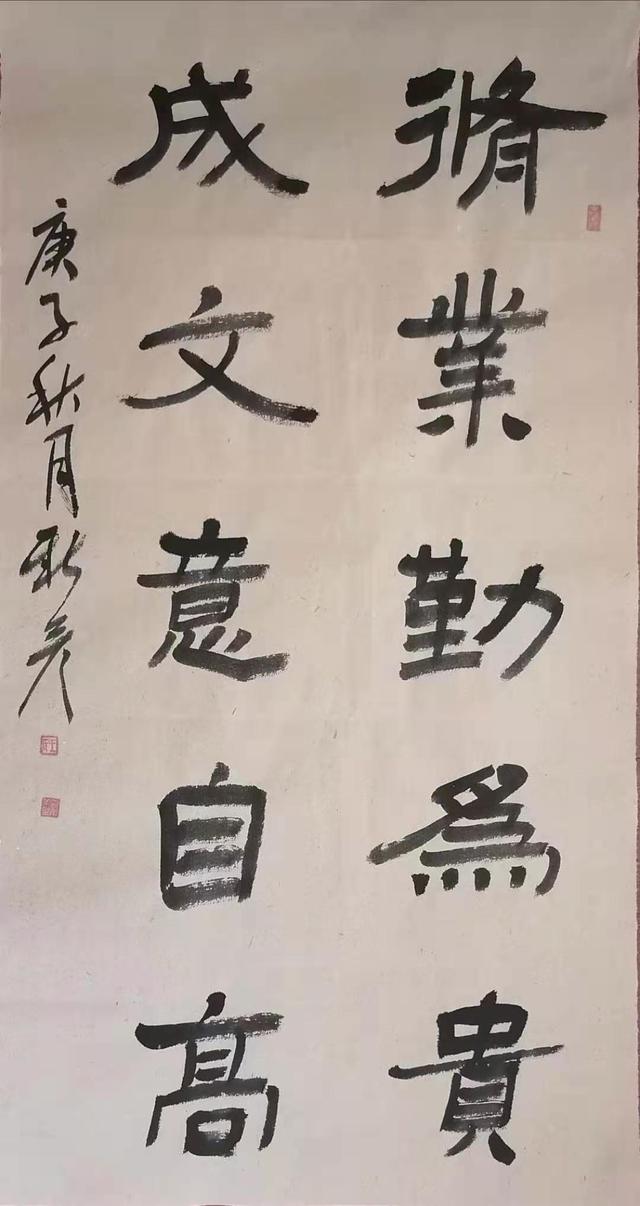 脩業勤為貴
成文意自高
庚子秋月新彦